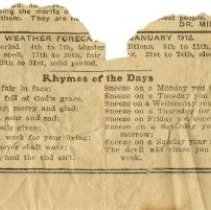 ing the merits of
them. They are no
DR. MIL
WEATHER FORECA
JANUARY 1912.
eriod. 4th to 7th, bluster
ditions. 8th to 12th,
spell. 17th to 20th, fair
er. 21st to 24th,
29th to 31st, mild period.
Rhymes of the Days
fair in face;
full of God's grace.
y, merry and glad;
sour and sad;
godly given;
work for your living;
never shall want;
and the end on't.
Sneeze on a Monday you
Sneeze on a Tuesday you
Sneeze on a Wednesday
Sneeze on a Thursday
Sneeze on a Friday
Sneeze on a Saturday
morrow.
Sneeze on a Sunday your
The devil will chase you
week.